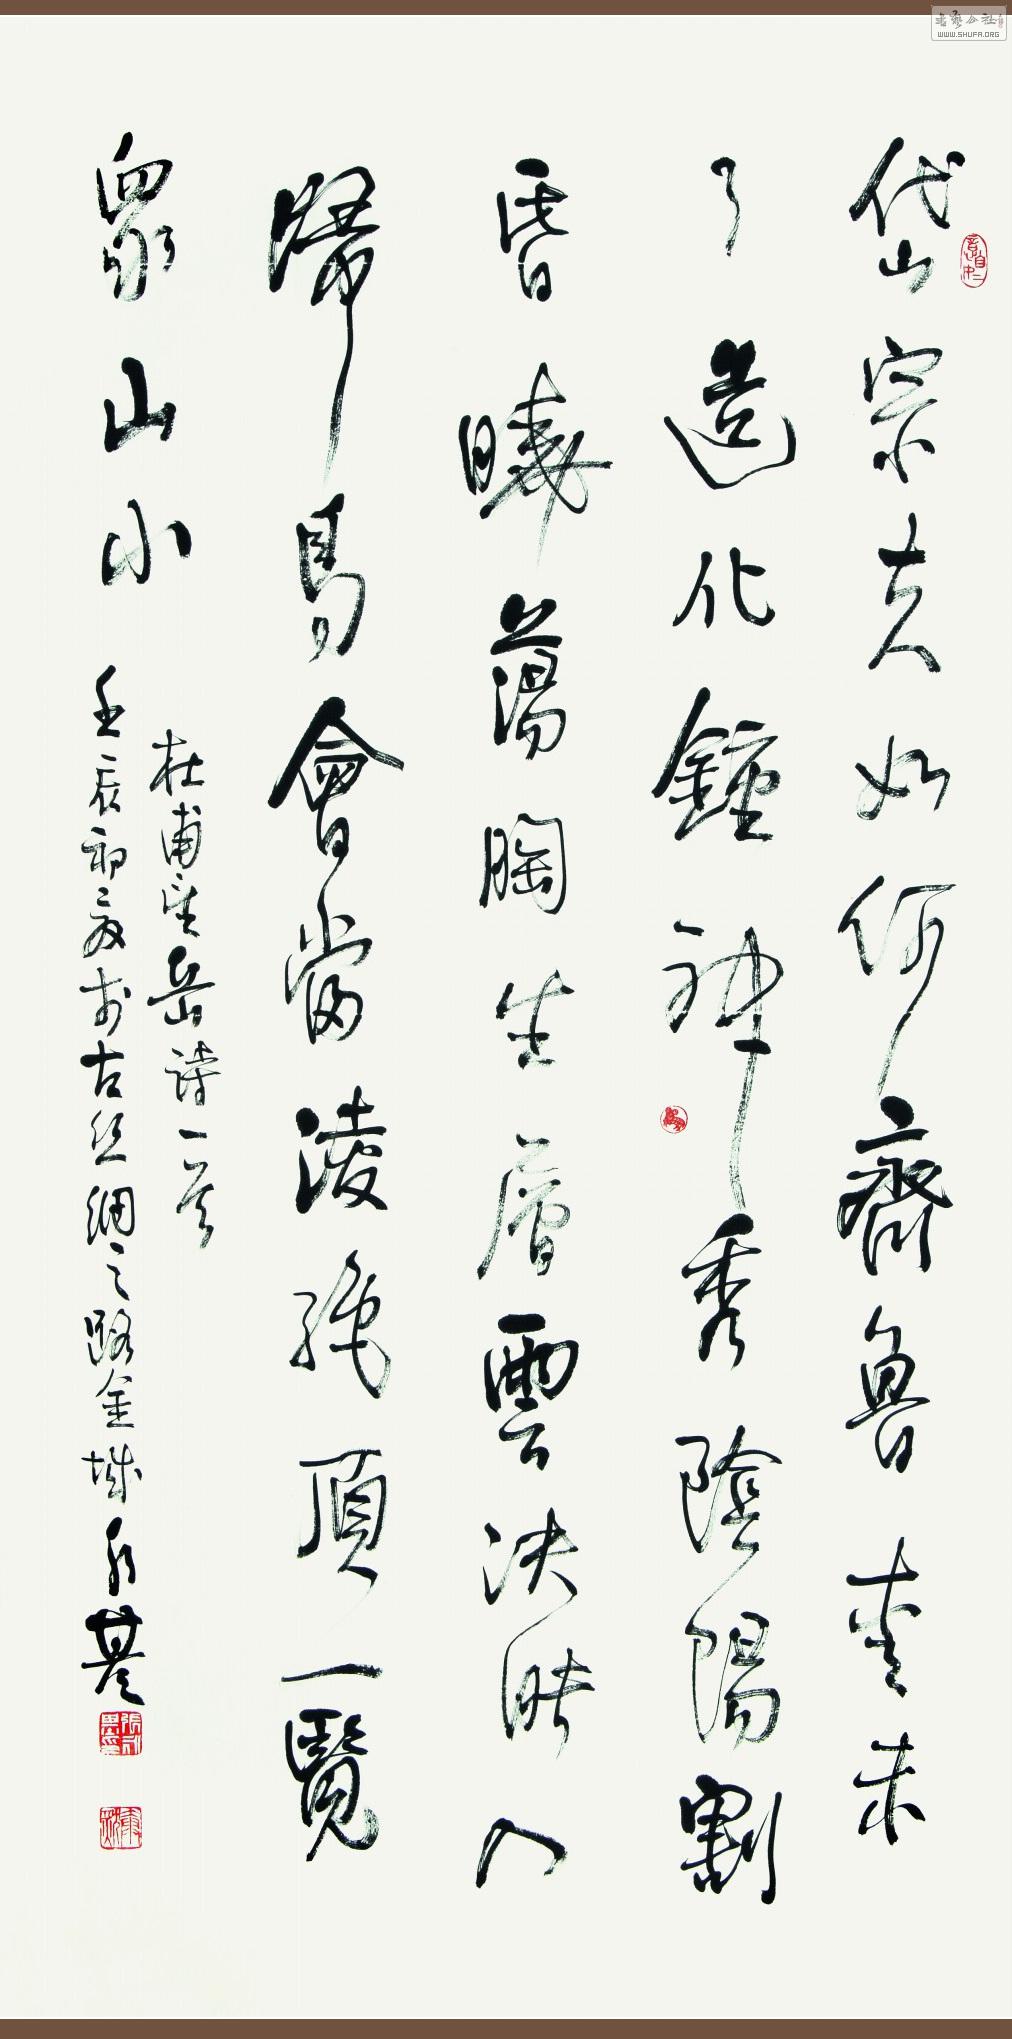 岱宗夫如何齊魯青未
了造化鍾神秀陰陽割
昏曉蕩胸生層雲決眦入
歸鳥會當凌絕頂一覽
眾山小
杜甫望岳詩一首
壬辰初夏於古絲綢之路金城
书艺公社
WWW.SHUFA.ORG